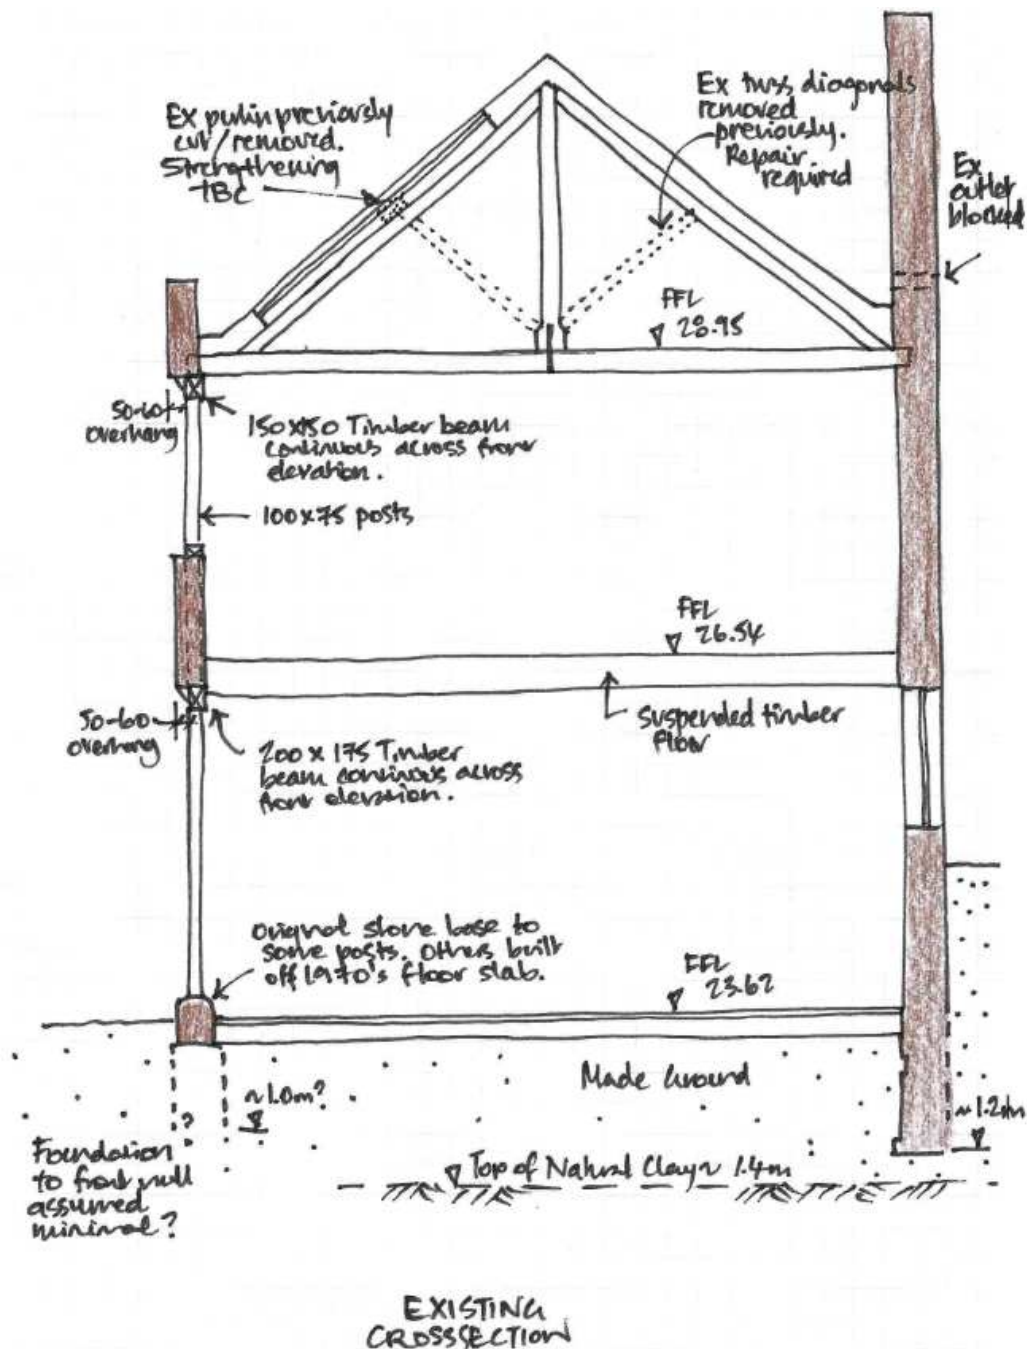 Ex purlin previously
cut/removed.
Strengthening
TBC
Ex truss diagonals
removed
previously.
Repair
required
Ex
outlet
blocked
FFL
28.95
50-60
overhang
150x150 Timber beam
continuous across front
elevation.
100x75 posts
FFL
26.54
suspended timber
floor
50-60
overhang
200 x 175 Timber
beam continuous across
front elevation.
original stone base to
some posts. Others built
off 1970's floor slab.
FFL
23.62
Made Ground
~1.0m?
?
Foundation
to front wall
assumed
minimal?
Top of Natural Clay ~ 1.4m
EXISTING
CROSSSECTION